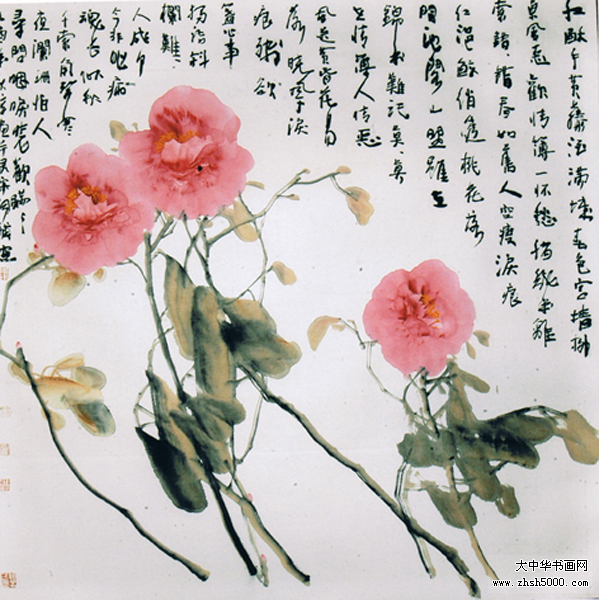 红酥手黄藤酒满城春色宫墙柳
东风恶欢情薄一怀愁绪几年離
索错错春如舊人空瘦淚痕
红浥鲛绡透桃花落
閒池閣山盟雖在
錦书難託莫莫
世情薄人情恶
雨送黄昏花易
落晓风淚
痕残欲
箋心事
独语斜
欄難
人成个
今非昨病
魂长似秋
千索角声寒
夜闌珊怕人
尋問咽淚装歡瞒
大中华书画网
www.zhsh5000.com